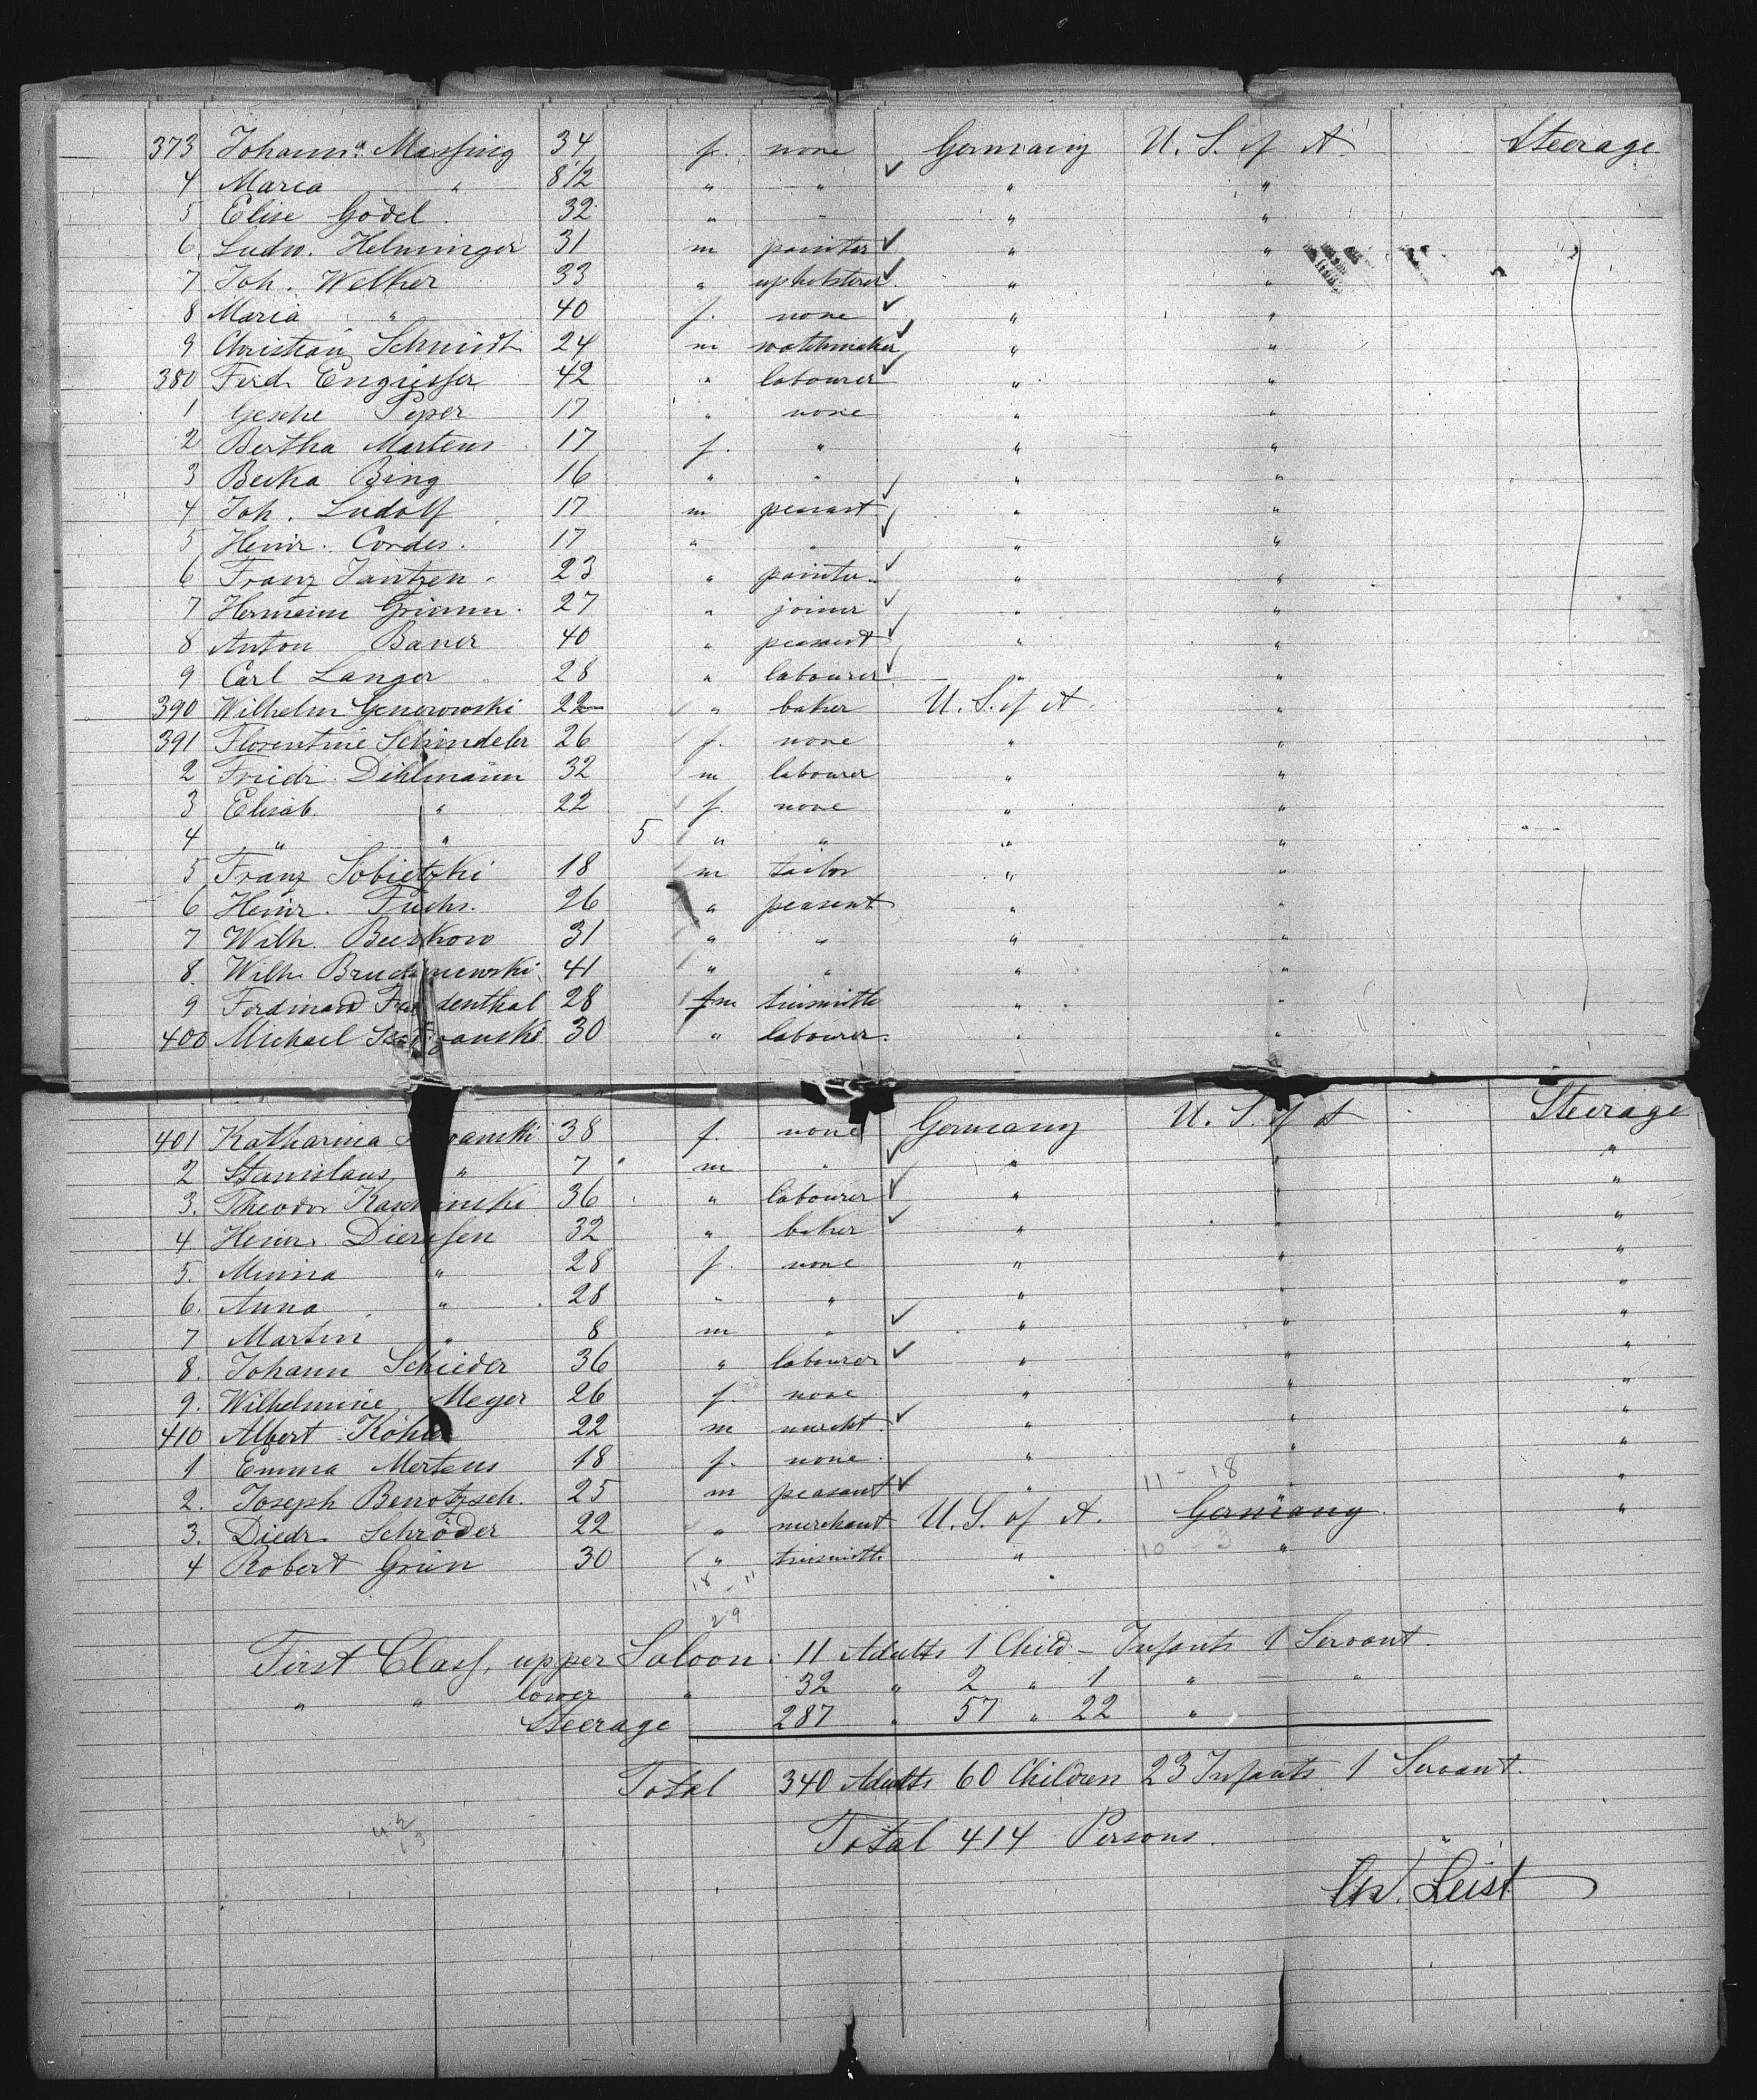 373 Johanna Massing 34 f. none Germany U. S. of A. Steerage
4 Maria " 8 1/2 " " " "
5 Elise Gödel. 32 " " " "
6 Ludw. Helminger 31 m painter " "
7 Joh. Welker 33 " upholsterer " "
8 Maria " 40 f. none " "
9 Christian Schmidt 24 m watchmaker " "
380 Ferd. Engiesser 42 " labourer " "
1 Gesche Peper 17 " none " "
2 Bertha Martens 17 f. " " "
3 Beika Bing 16 " " " "
4 Joh. Ludolf 17 m peasant " "
5 Heinr. Cordes. 17 " " " "
6 Franz Jantzen 23 " painter " "
7 Hermann Grimm. 27 " joiner " "
8 Anton Bauer 40 " peasant " "
9 Carl Langer 28 " labourer " "
390 Wilhelm Genorowski 22 " baker U. S. of A. "
391 Florentine Schindeler 26 f. none " "
2 Friedr. Dihlmann 32 m labourer " "
3 Elisab. " 22 f. none " "
4 " " 5 " " " "
5 Franz Sobietzki 18 m tailor " "
6 Heinr. Fuchs. 26 " peasant " "
7 Wilh. Buskow 31 " " " "
8. Wilh. 41 " " " "
9 Ferdinand 28 m tinsmith " "
400 Michael 30 " labourer. " "
401 Katharina 38 f. none Germany U. S. of A Steerage
2 Stanislaus " 7 m " " " "
3. Theodor 36 " labourer " " "
4 Heinr. Dierksen 32 " baker " " "
5. Minna " 28 f. none " " "
6. Anna " 28 " " " " "
7 Martin " 8 m " " " "
8. Johann Schieder 36 " labourer " " "
9. Wilhelmine Meyer 26 f. none " " "
410 Albert Köhler 22 m mercht. " " "
1 Emma Mertens 18 f. none. " " "
2. Joseph Benotzsch. 25 m peasant " " "
11 - 18
3. Diedr. Schröder 22 " merchant U. S. of A. Germany. "
4 Robert Grün 30 " tinsmith " "
10 3
18 - 11
29
First Class, upper Saloon: 11 Adults 1 Child - Infants 1 Servant.
" " lower " 32 " 2 " 1 " "
Steerage 287 " 57 " 22 "
Total 340 Adults 60 Children 23 Infants 1 Servant.
Total 414 Persons.
Ch. Leist